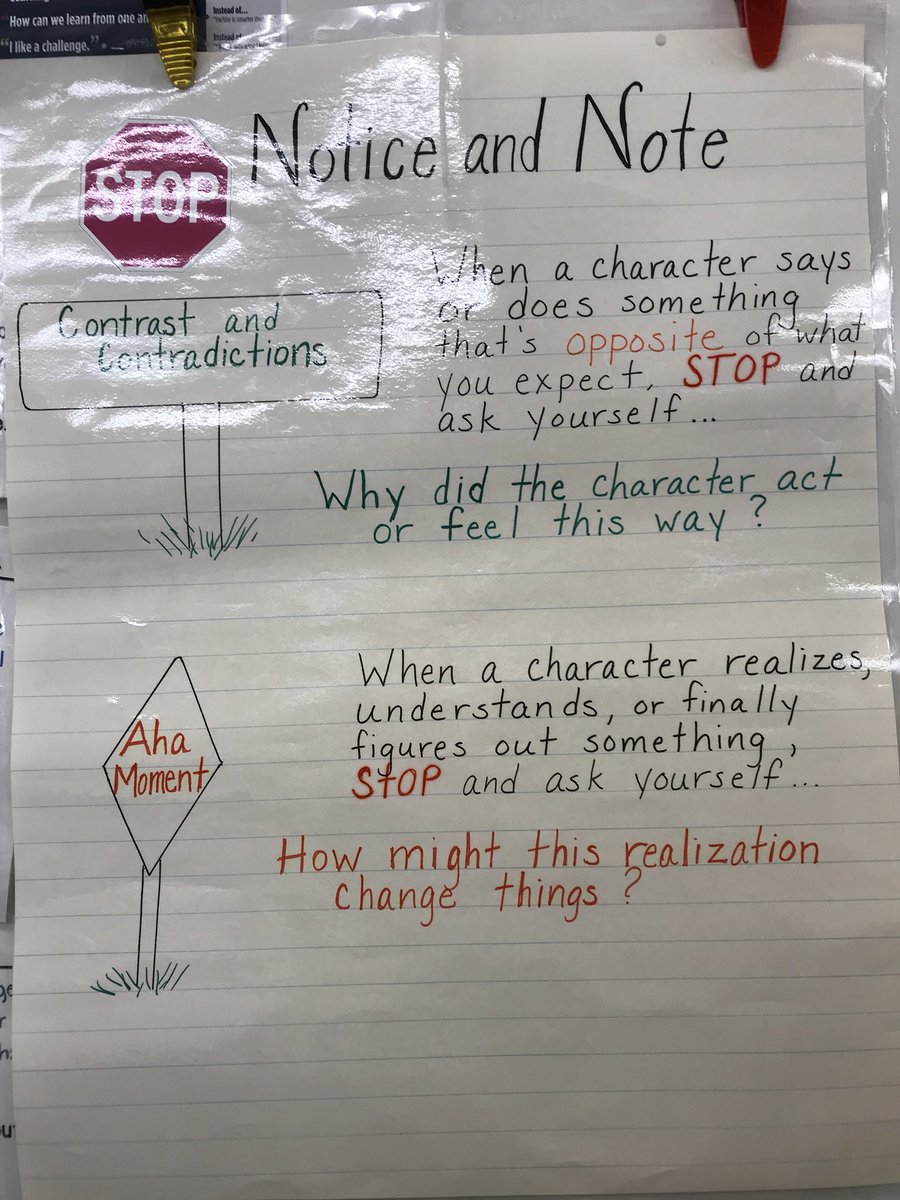 How can we learn from one an
"I like a challenge."
Instead of...
Instead of
STOP
Notice and Note
Contrast and
Contradictions
When a character says
or does something
that's opposite of what
you expect, STOP and
ask yourself...
Why did the character act
or feel this way?
Aha
Moment
When a character realizes,
understands, or finally
figures out something,
STOP and ask yourself...
How might this realization
change things?